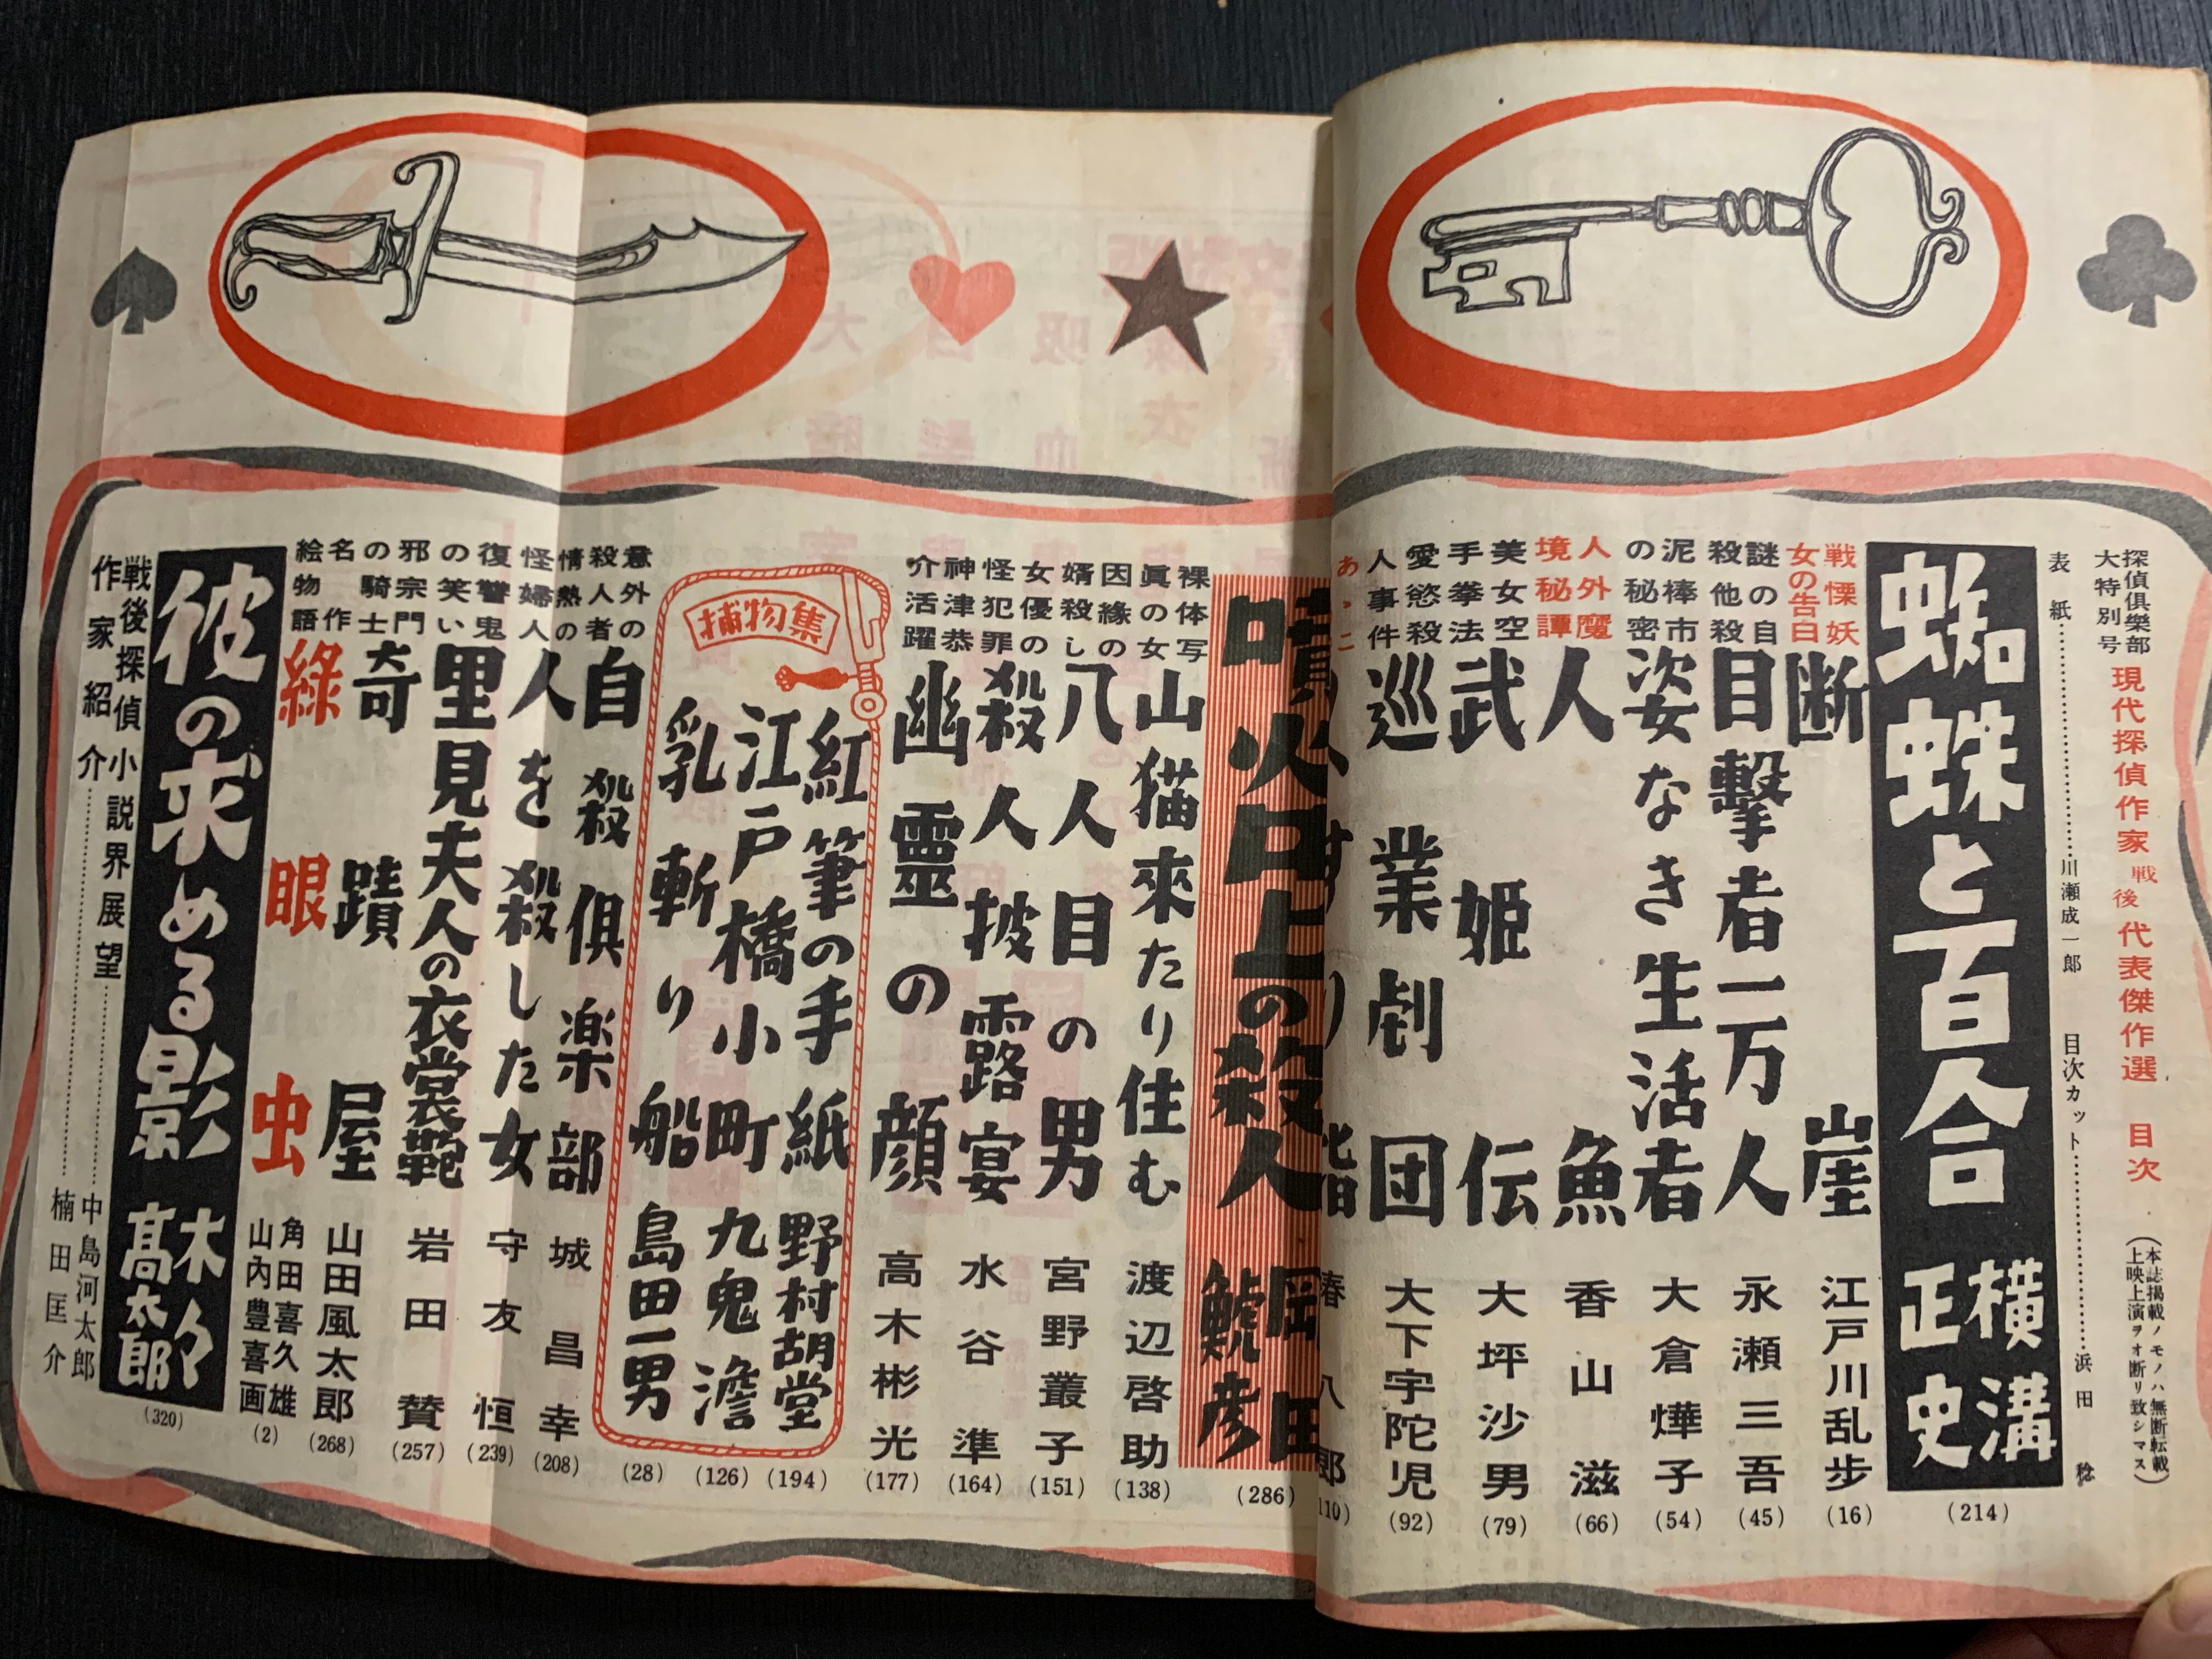 探偵俱樂部
大特別号
現代探偵作家戦後代表傑作選 目次
(本誌掲載ノモノハ無断転載
上映上演ヲオ断リ致シマス)
表紙……川瀬成一郎
目次カット……浜田稔
蜘蛛と百合 横溝正史 (214)
戦慄妖女の告白 断崖 江戸川乱歩 (16)
謎の自殺他殺 目撃者一万人 永瀬三吾 (45)
泥棒市の秘密 姿なき生活者 大倉燁子 (54)
人外魔境秘譚 人魚 香山滋 (66)
美女空手拳法 武姫伝 大坪沙男 (79)
愛慾殺人事件 巡業劇団 大下宇陀児 (92)
噴火口上の殺人 岡田鯱彦 (286)
裸体写眞の女 山猫來たり住む 渡辺啓助 (138)
因縁の婿殺し 八人目の男 宮野叢子 (151)
女優の怪犯罪 殺人披露宴 水谷準 (164)
神津恭介活躍 幽靈の顔 高木彬光 (177)
捕物集
紅筆の手紙 野村胡堂 (194)
江戸橋小町 九鬼澹 (126)
乳斬り船 島田一男 (28)
意外の殺人者 自殺俱楽部 城昌幸 (208)
情熱の怪婦人 人を殺した女 守友恒 (239)
復讐鬼の笑い 里見夫人の衣裳鞄 岩田賛 (257)
邪宗門の騎士 奇蹟屋 山田風太郎 (268)
名作絵物語 緑眼虫 角田喜久雄 山内豊喜画 (2)
彼の求める影 木々高太郎 (320)
戦後探偵小説界展望……中島河太郎
作家紹介……楠田匡介